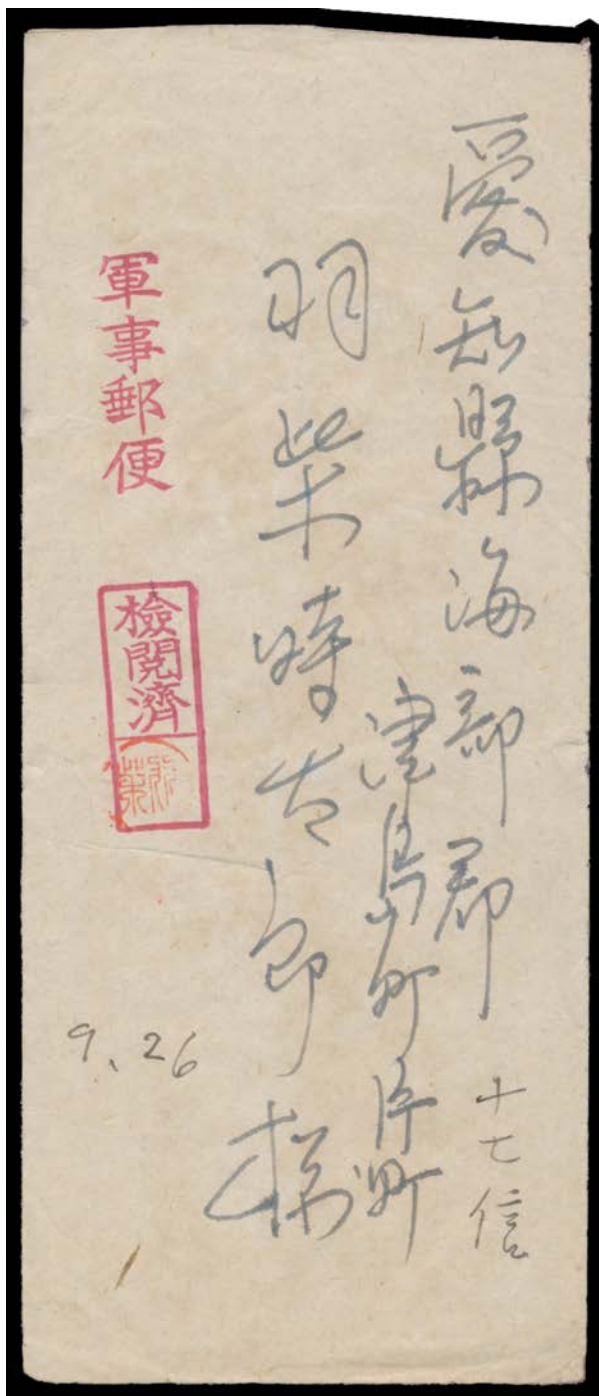 愛知縣海部郡
津島町片町
十七信
羽柴時太郎様
軍事郵便
檢閲濟
9、26